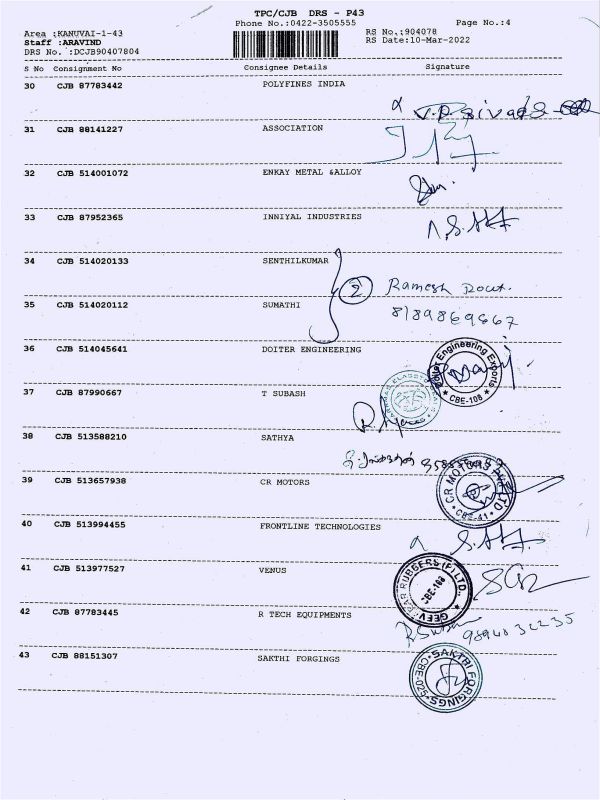 TPC/CJB DRS - P43
Phone No.:0422-3505555
Page No.:4
Area :KANUVAI-1-43
RS No.:904078
Staff :ARAVIND
RS Date:10-Mar-2022
DRS No.:DCJB90407804
S No Consignment No Consignee Details Signature
30 CJB 87783442 POLYFINES INDIA
31 CJB 88141227 ASSOCIATION
32 CJB 514001072 ENKAY METAL &ALLOY
33 CJB 87952365 INNIYAL INDUSTRIES
34 CJB 514020133 SENTHILKUMAR
2 Ramesh Rout.
35 CJB 514020112 SUMATHI
36 CJB 514045641 DOITER ENGINEERING
Doiter Engineering Exports
CBE-108
37 CJB 87990667 T SUBASH
38 CJB 513588210 SATHYA
39 CJB 513657938 CR MOTORS
CR MOTORS LTD
CBE-41
40 CJB 513994455 FRONTLINE TECHNOLOGIES
41 CJB 513977527 VENUS
RUBBERS (P) LTD.
CBE-108
42 CJB 87783445 R TECH EQUIPMENTS
43 CJB 88151307 SAKTHI FORGINGS
SAKTHI FORGINGS